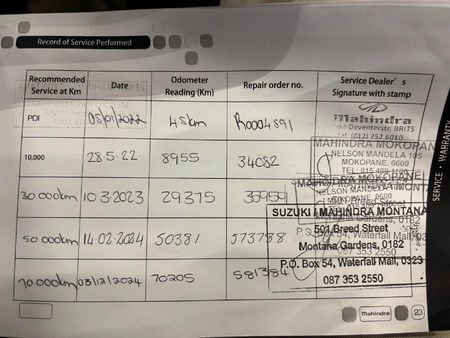 Record of Service Performed
Recommended Service at Km | Date | Odometer Reading (Km) | Repair order no. | Service Dealer's Signature with stamp
PDI | 05/01/2022 | 45km | R0004891 | Mahindra
BRITS
Tel: (012) 252 6010
10,000 | 28.5.22 | 8955 | 34082 | MAHINDRA MOKOPANE
NELSON MANDELA 105
MOKOPANE, 0600
30 000km | 10.3.2023 | 29375 | 35959 | NELSON MANDELA
MOKOPANE, 0600
50 000km | 14.02.2024 | 50381 | 573788 | SUZUKI & MAHINDRA MONTANA
501 Breed Street
Montana Gardens, 0182
70 000km | 03/12/2024 | 70205 | 581384 | P.O. Box 54, Waterfall Mall, 0323
087 353 2550
SERVICE · WARRANTY
Mahindra
23